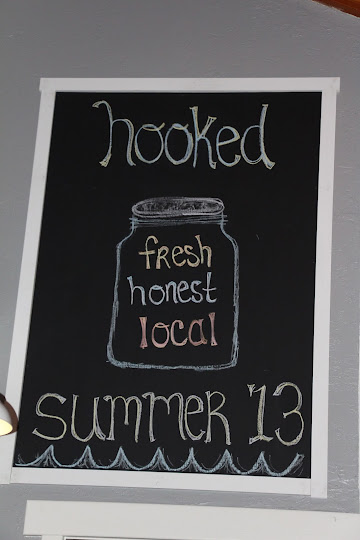 hooked
fresh
honest
local
summer 13